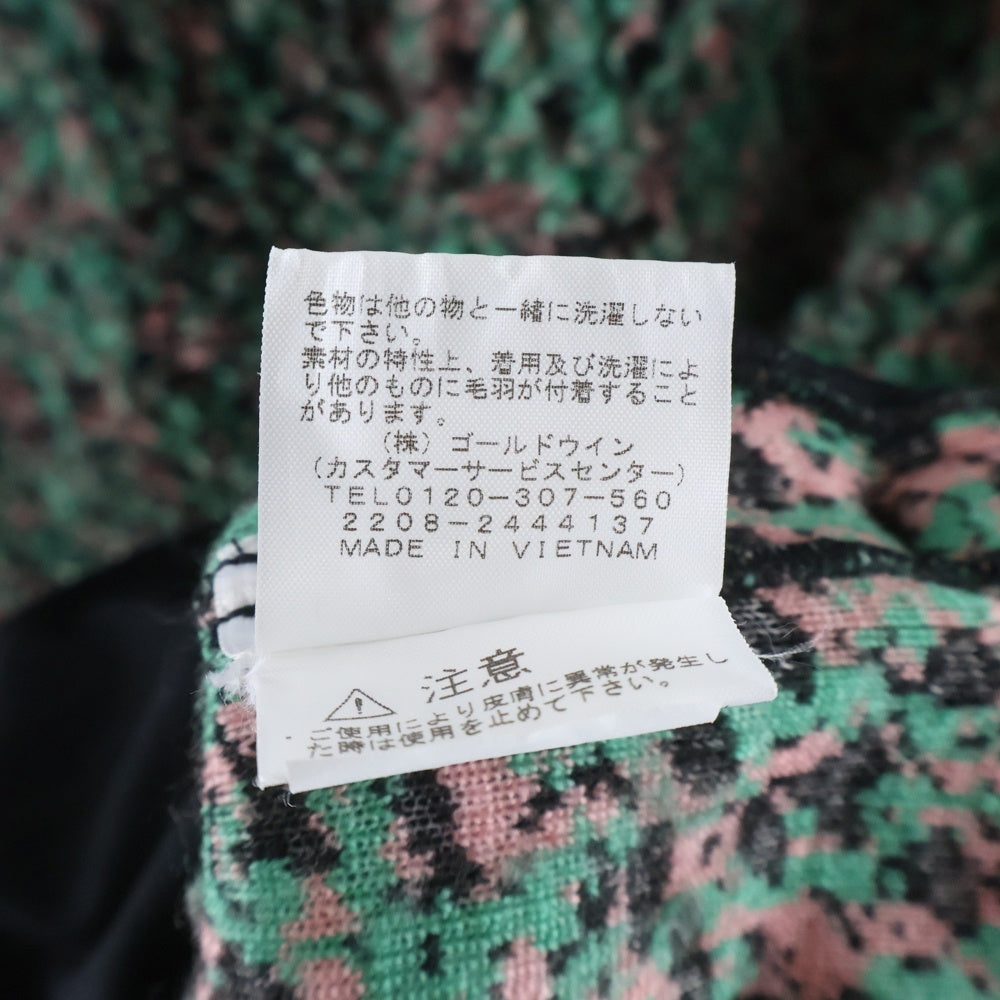 色物は他の物と一緒に洗濯しない
で下さい。
素材の特性上、着用及び洗濯によ
り他のものに毛羽が付着すること
があります。
(株)ゴールドウイン
(カスタマーサービスセンター)
TEL0120-307-560
2208-2444137
MADE IN VIETNAM
注意
ご使用により皮膚に異常が発生し
た時は使用を止めて下さい。